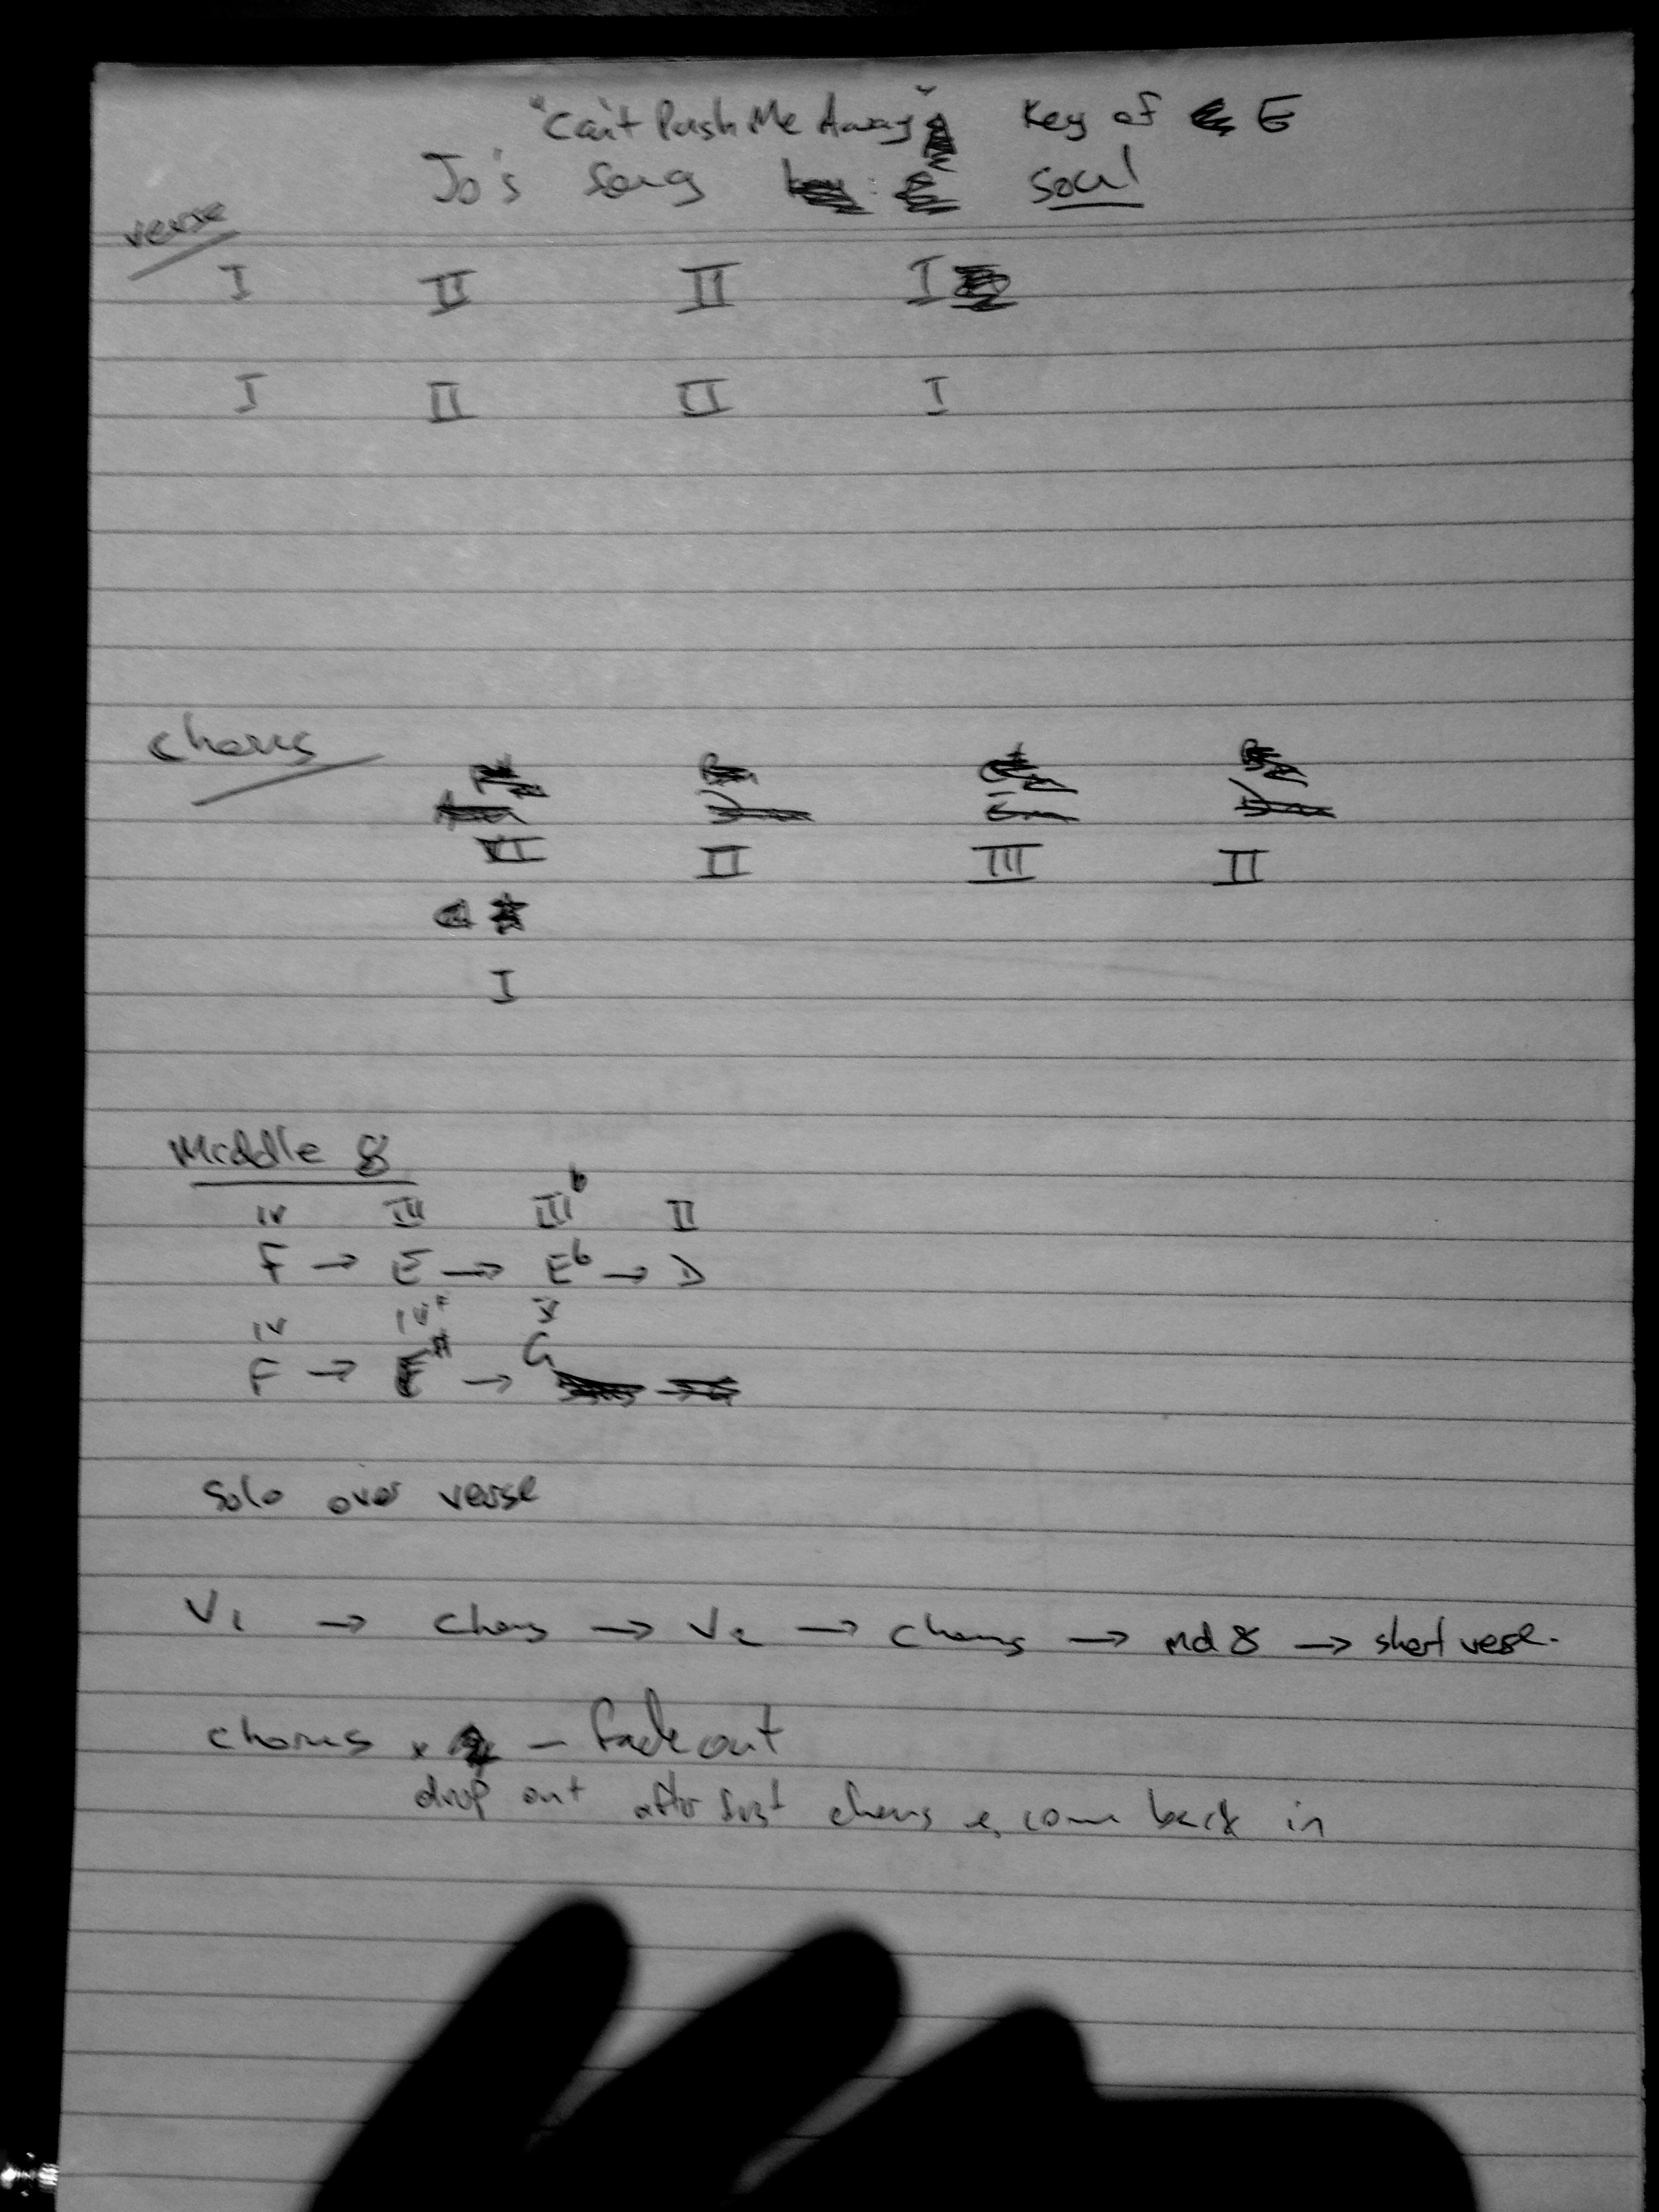 "Can't Push Me Away" Key of E
Jo's Song soul
verse
I II II I
I II II I
chorus
VI II III II
I
Middle 8
IV III IIIb II
F → E → Eb → D
IV IV# V
F → F# → G
solo over verse
V1 → chorus → V2 → chorus → md 8 → short verse.
chorus x - fade out
drop out after first chorus & come back in